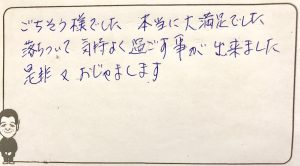 ごちそう様でした 本当に大満足でした
落ちついて 気持よく過ごす事が出来ました
是非又おじゃまします